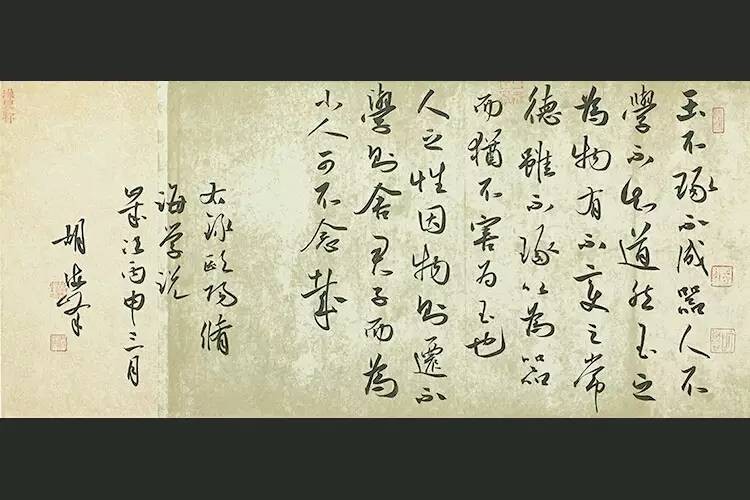 玉不琢不成器人不
學不知道然玉之
為物有不变之常
德雖不琢以為器
而猶不害为玉也
人之性因物則遷不
學則舍君子而為
小人可不念哉
右录欧阳脩
诲学说
歲次丙申三月
胡